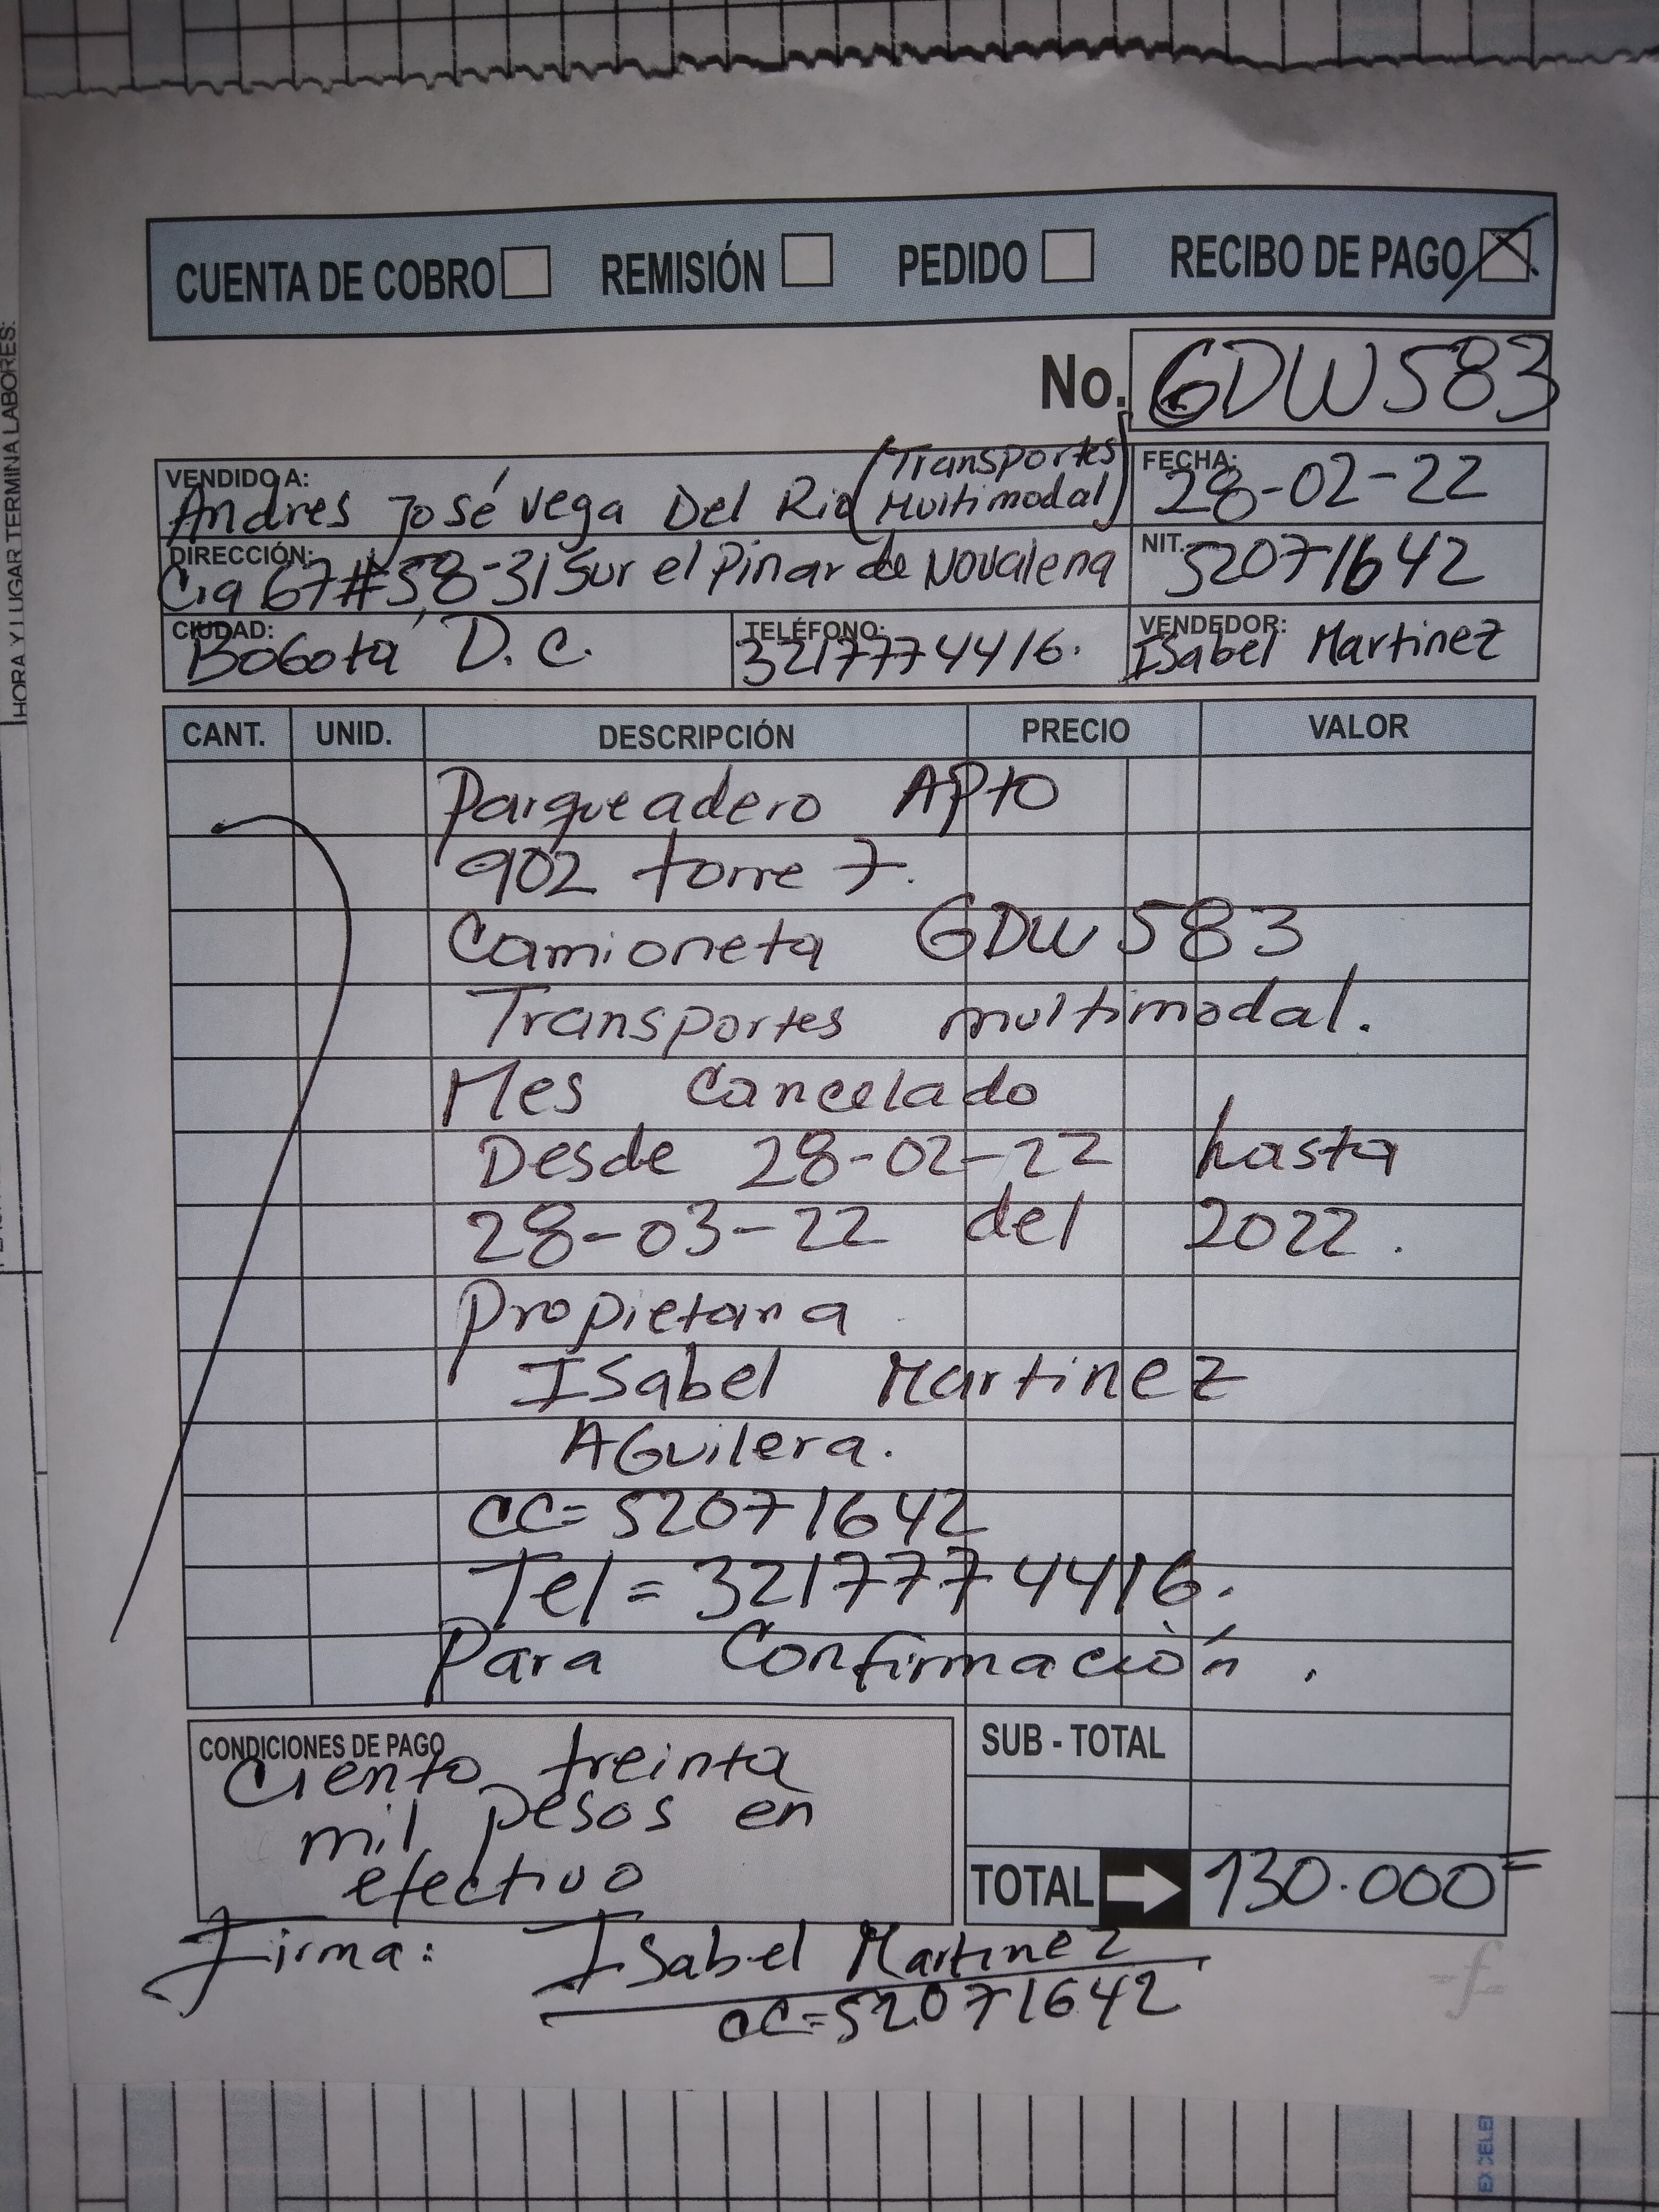 HORA Y LUGAR TERMINA LABORES:
CUENTA DE COBRO REMISIÓN PEDIDO RECIBO DE PAGO X
No. GDW583
VENDIDO A: Andres José Vega Del Rio (Transportes Multimodal)
FECHA: 28-02-22
DIRECCIÓN: Cra 67#58-31 Sur el Pinar de Novalena
NIT. 52071642
CIUDAD: Bogotá D.C.
TELÉFONO: 3217774416.
VENDEDOR: Isabel Martinez
CANT. UNID. DESCRIPCIÓN PRECIO VALOR
Parqueadero APto
902 torre 7.
Camioneta GDW583
Transportes multimodal.
Mes Cancelado
Desde 28-02-22 hasta
28-03-22 del 2022.
Propietaria
Isabel Martinez
Aguilera.
CC=52071642
Tel=3217774416.
Para Confirmación.
CONDICIONES DE PAGO
Ciento treinta
mil pesos en
efectivo
SUB - TOTAL
TOTAL 130.000=
Firma: Isabel Martinez
CC=52071642